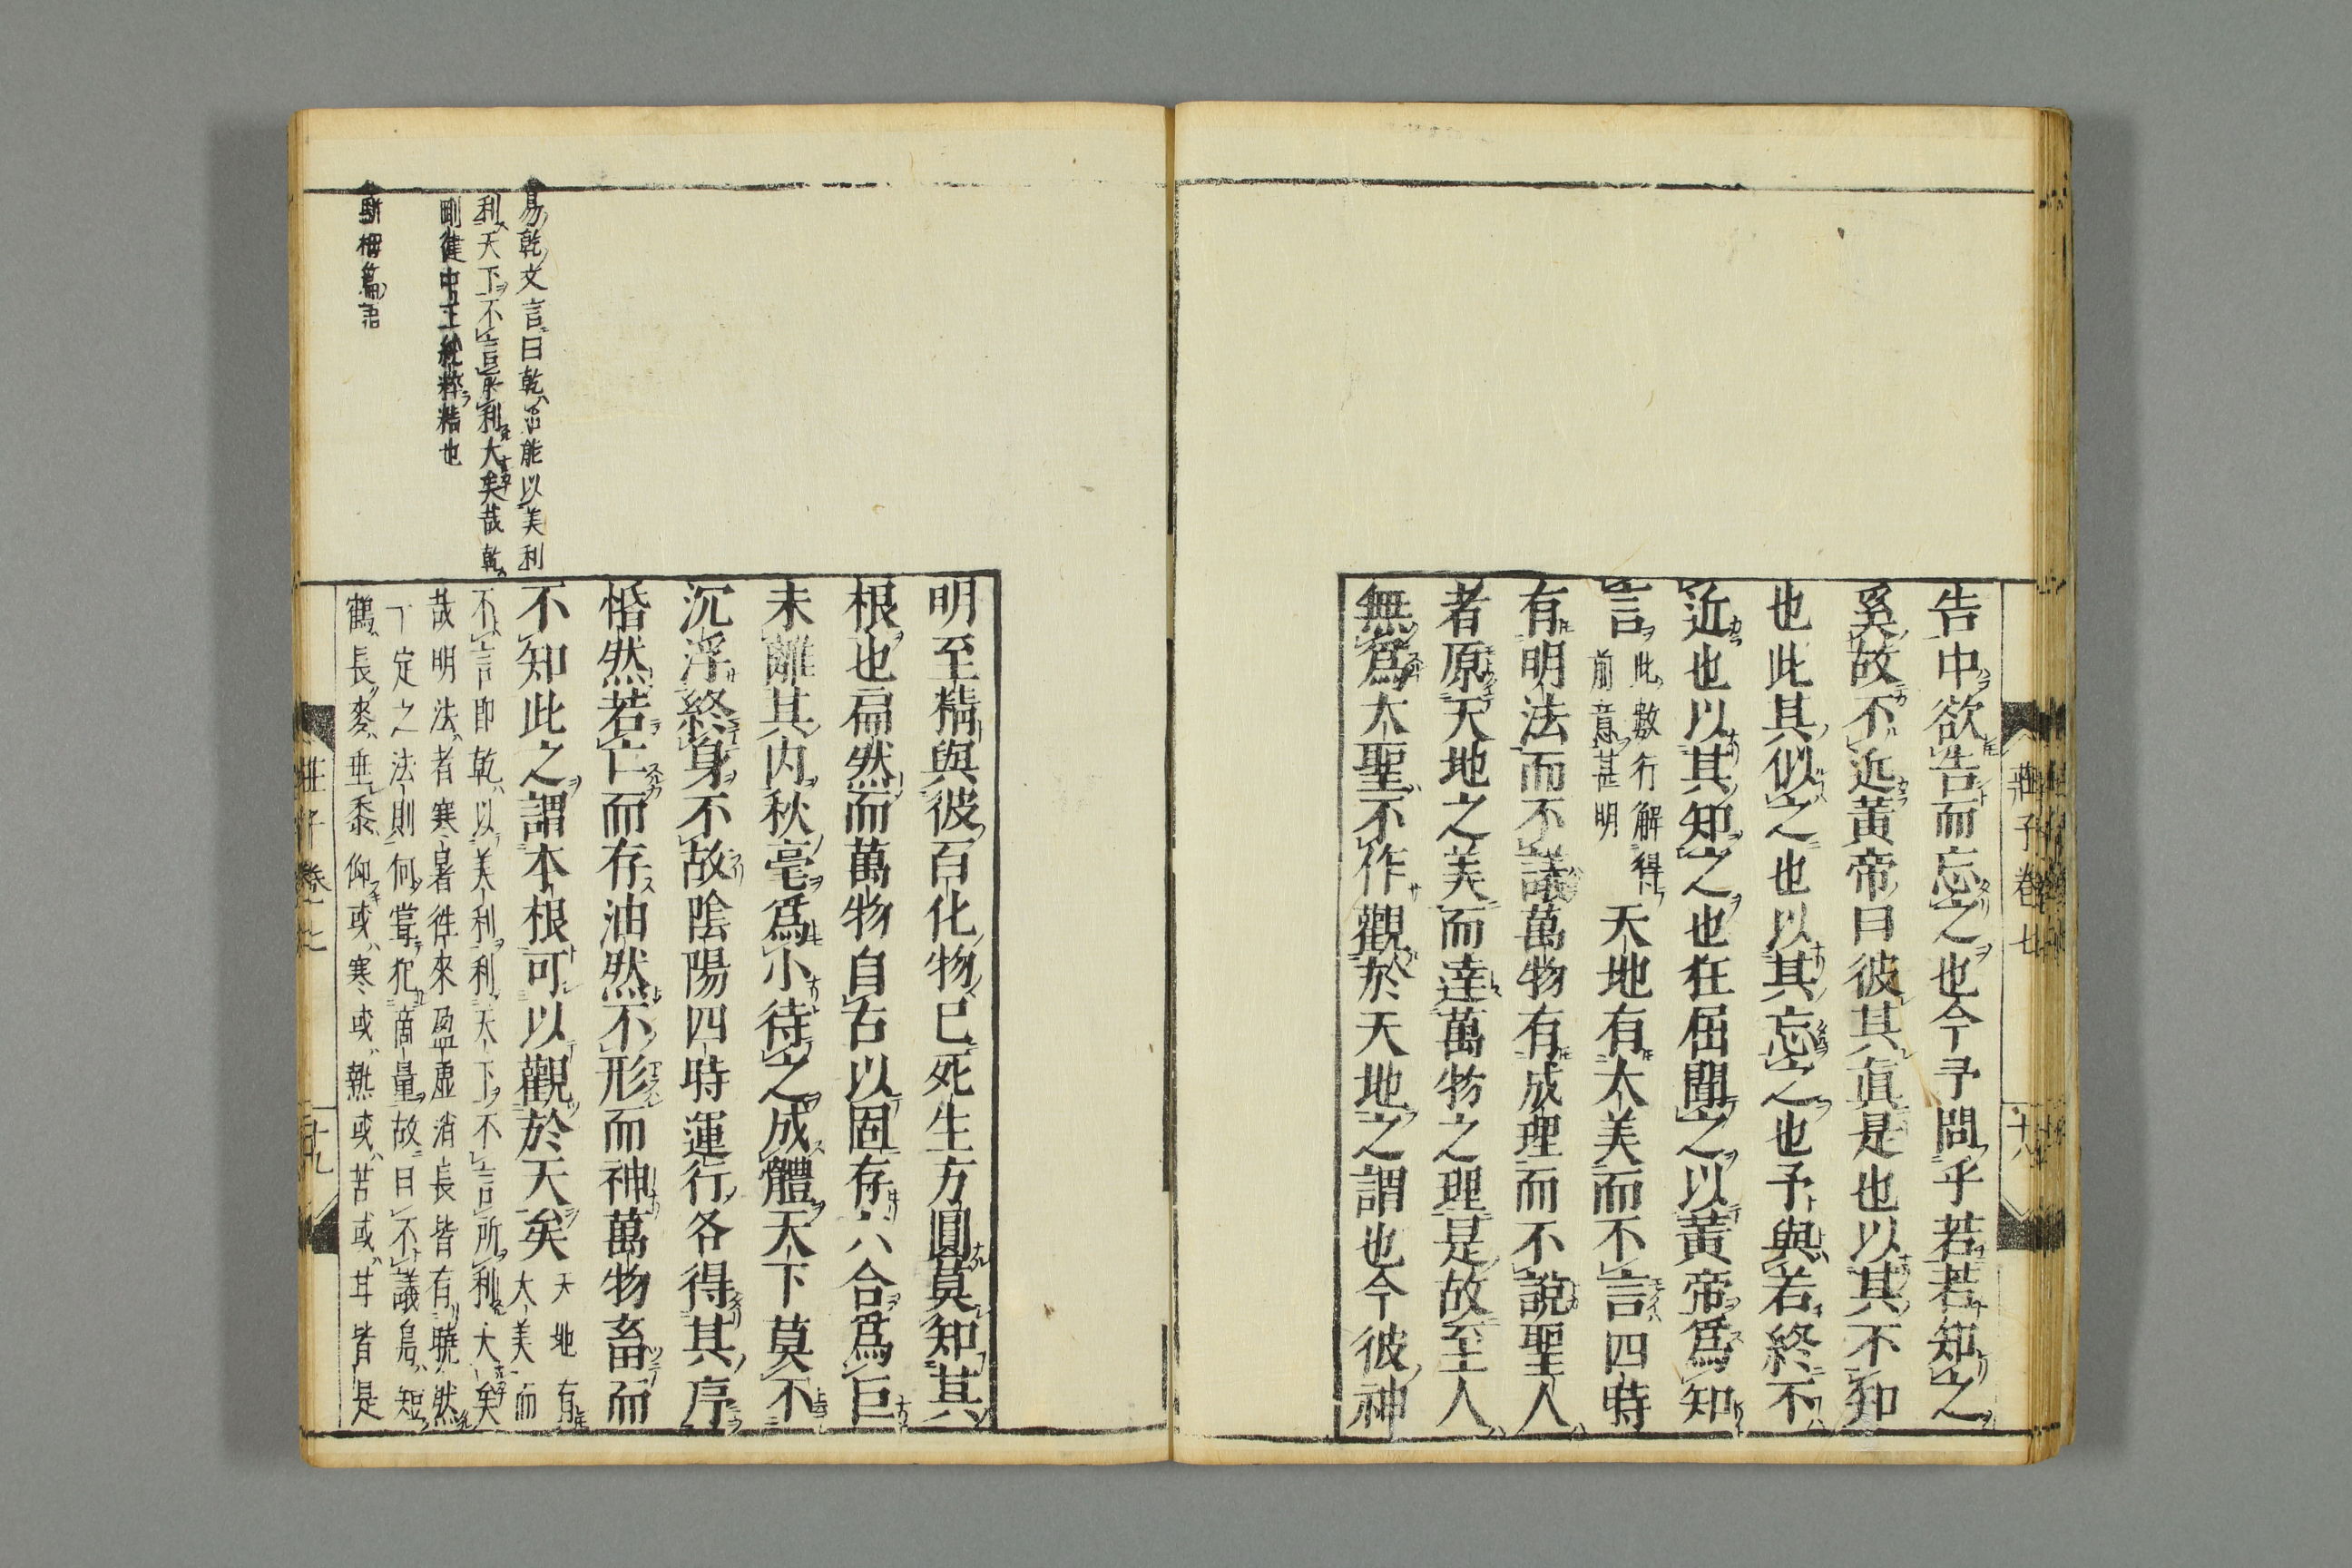 莊子卷七
十八
告中欲告而忘之也今予問乎若若知之
奚故不近黃帝曰彼其眞是也以其不知
也此其似之也以其忘之也予與若終不
近也以其知之也狂屈聞之以黃帝爲知
言此數行解得前意甚明天地有大美而不言四時
有明法而不議萬物有成理而不說聖人
者原天地之美而達萬物之理是故至人
無爲大聖不作觀於天地之謂也今彼神
明至精與彼百化物已死生方圓莫知其
根也扁然而萬物自古以固存六合爲巨
未離其內秋毫爲小待之成體天下莫不
沉浮終身不故陰陽四時運行各得其序
惛然若亡而存油然不形而神萬物畜而
不知此之謂本根可以觀於天矣天地有大美而
不言即乾以美利利天下不言所利大矣
哉明法者寒暑徃來盈虛消長皆有曉然
一定之法則何甞犯啇量故曰不議鳬短
鶴長麥垂黍仰或寒或熱或苦或甘皆是
易乾文言曰乾始能以美利
利天下不言所利大矣哉乾
剛健中正純粹精也
駢拇篇語
莊子卷七
十九